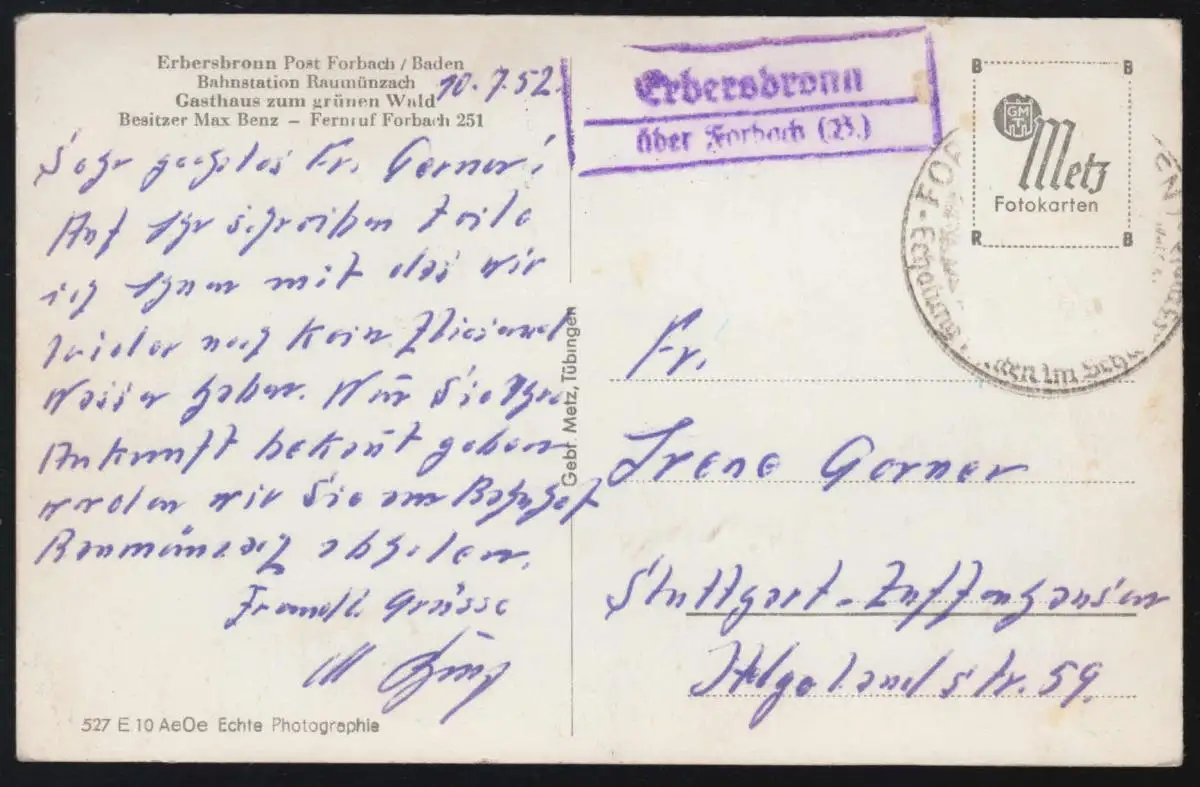 Erbersbronn Post Forbach / Baden
Bahnstation Raumünzach
Gasthaus zum grünen Wald
Besitzer Max Benz – Fernruf Forbach 251
10.7.52.
Sehr geehrtes Fr. Gerner!
Auf Ihr schreiben teile
ich Ihnen mit das wir
leider noch kein fliesend
Wasser haben. Wen Sie Ihre
Ankunft bekant geben
werden wir Sie am Bahnhof
Raumünzach abholen.
Freundl. Grüsse
M
527 E 10 AeOe Echte Photographie
Gebr. Metz, Tübingen
Erbersbronn
über Forbach (B.)
B B
GMT
Metz
Fotokarten
R B
FOR
Erholung im
Fr.
Irene Gerner
Stuttgart-Zuffenhausen
Helgolandstr. 59.